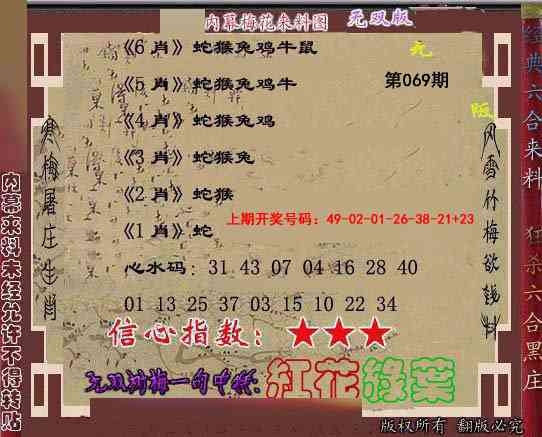 内幕梅花来料图 无双版
《6 肖》蛇猴兔鸡牛鼠
无
《5 肖》蛇猴兔鸡牛
第069期
版
《4 肖》蛇猴兔鸡
《3 肖》蛇猴兔
《2 肖》蛇猴
上期开奖号码：49-02-01-26-38-21+23
《1 肖》蛇
心水码：31 43 07 04 16 28 40
01 13 25 37 03 15 10 22 34
信心指数：★★★
无双刘梅一句中特：红花绿葉
寒梅屠庄生肖
风雪竹梅欲钱料
内幕来料未经允许不得转贴
经典六合来料 狂杀六合黑庄
版权所有 翻版必究